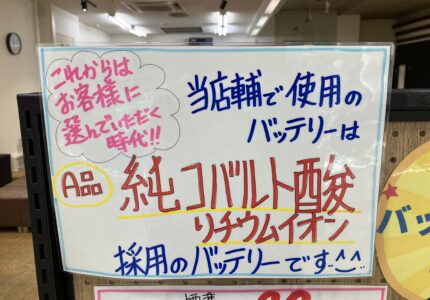 これからは
お客様に
選んでいただく
時代!!
当店輔で使用の
バッテリーは
A品
純コバルト酸
リチウムイオン
採用のバッテリーです^^
バッ